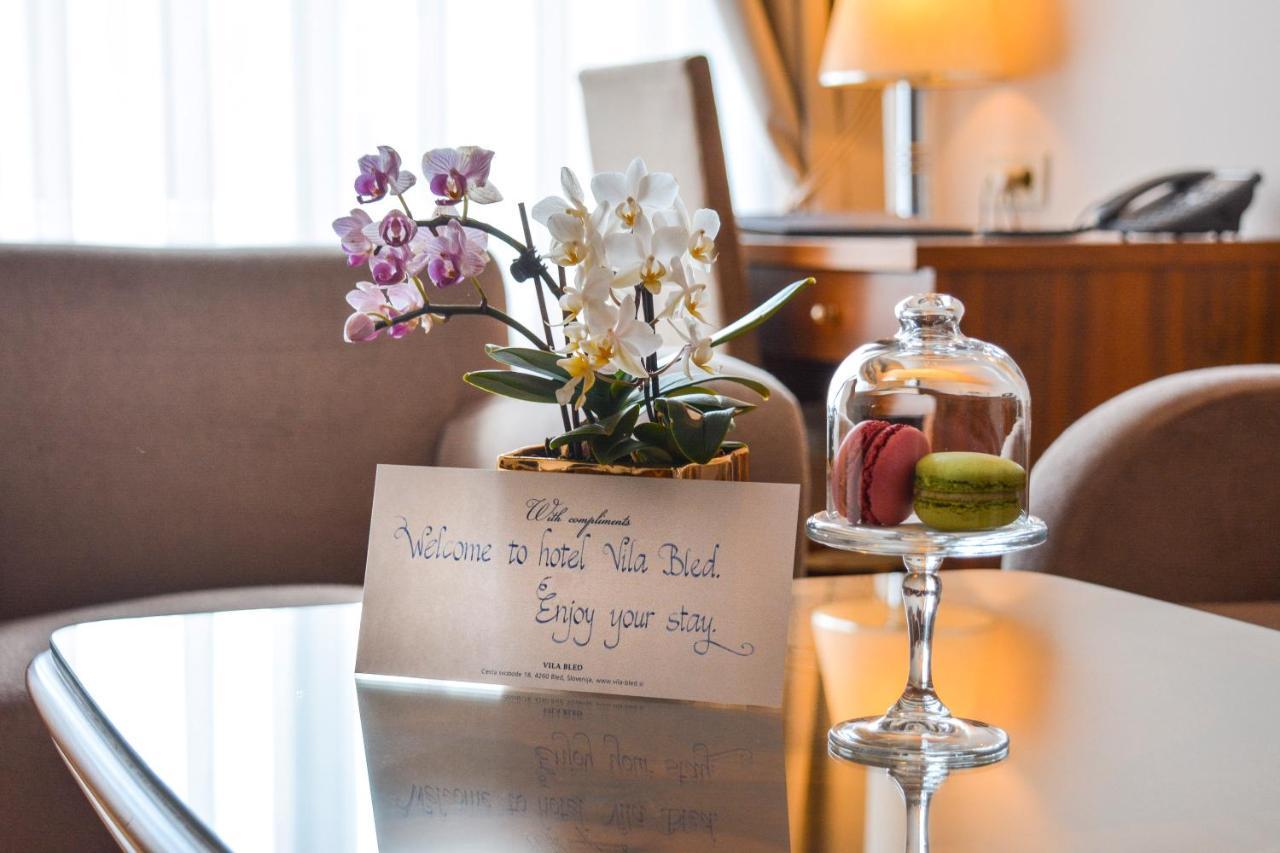 With compliments
Welcome to hotel Vila Bled.
Enjoy your stay.
VILA BLED
Cesta svobode 18, 4260 Bled, Slovenija, www.vila-bled.si